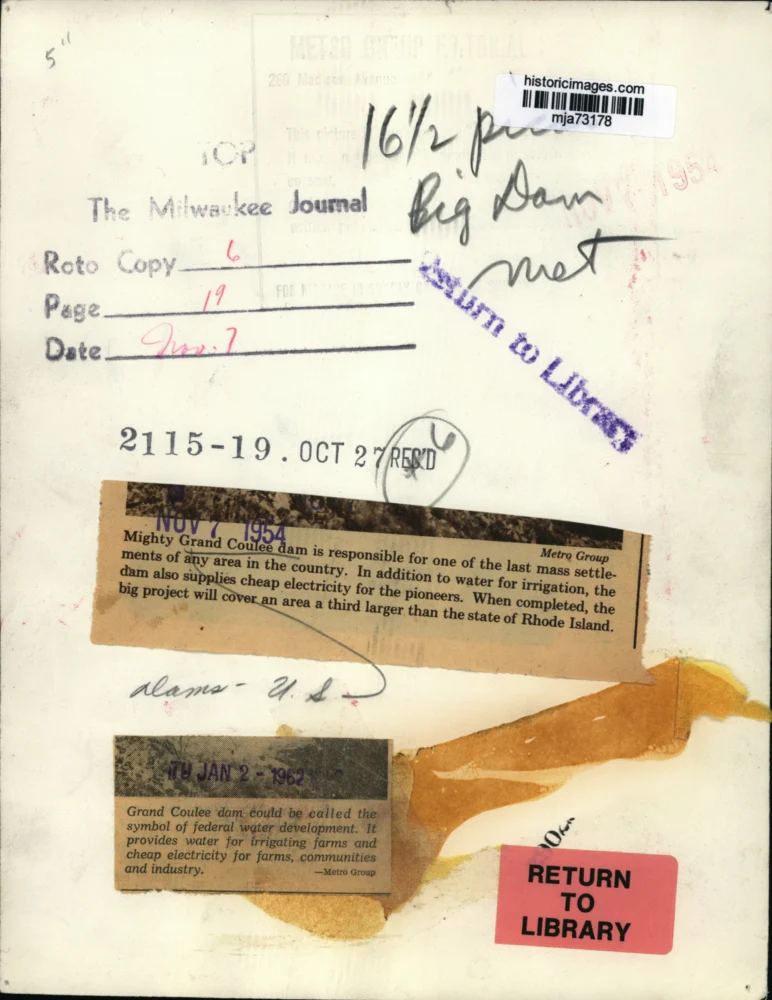 5"
historicimages.com
mja73178
16 1/2
TOP
The Milwaukee Journal
Big Dam
met
Roto Copy 6
Page 19
Date Nov. 7
Return to Library
2115-19. OCT 27 REC'D
6
NOV 7 1954
Metro Group
Mighty Grand Coulee dam is responsible for one of the last mass settle-
ments of any area in the country. In addition to water for irrigation, the
dam also supplies cheap electricity for the pioneers. When completed, the
big project will cover an area a third larger than the state of Rhode Island.
dams - U.S
TU JAN 2 - 1962
Grand Coulee dam could be called the
symbol of federal water development. It
provides water for irrigating farms and
cheap electricity for farms, communities
and industry. —Metro Group
RETURN
TO
LIBRARY